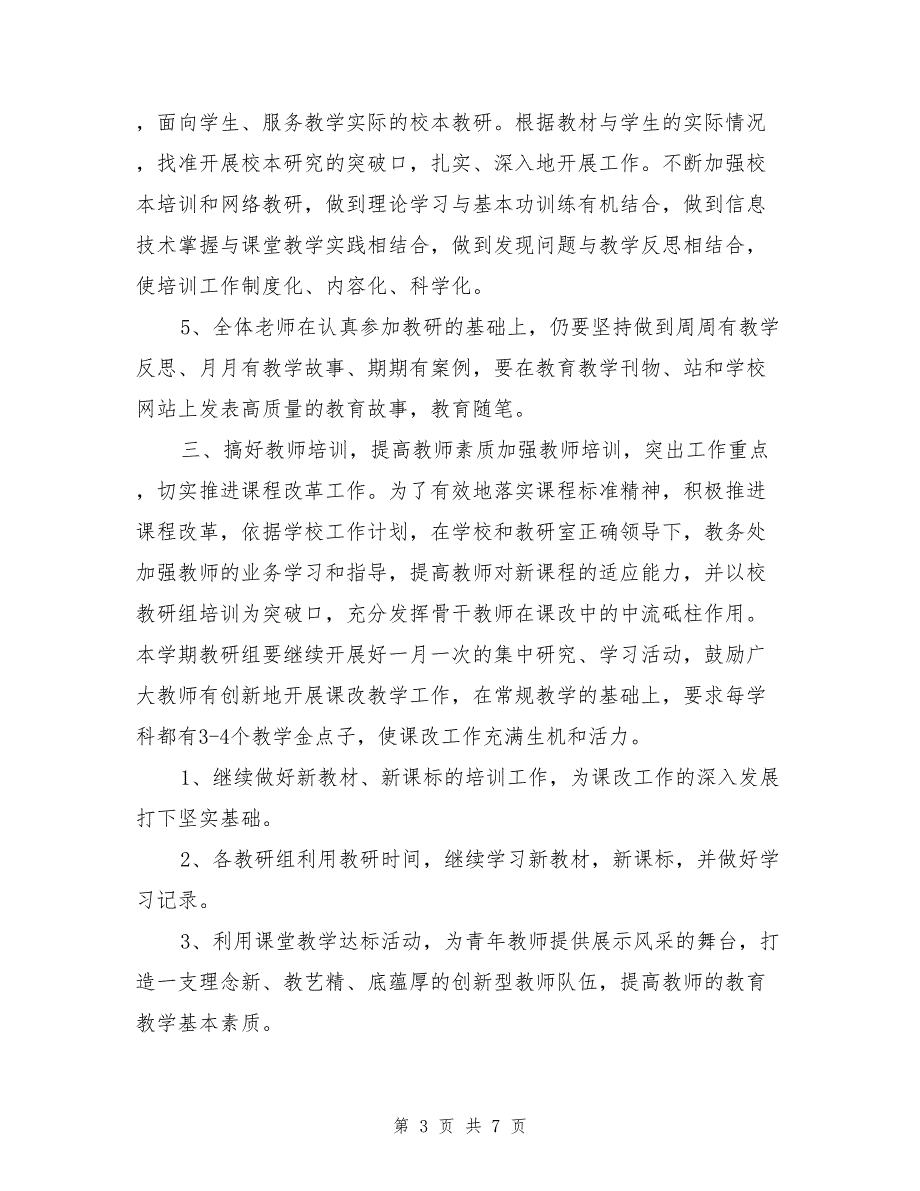 ，面向学生、服务教学实际的校本教研。根据教材与学生的实际情况
，找准开展校本研究的突破口，扎实、深入地开展工作。不断加强校
本培训和网络教研，做到理论学习与基本功训练有机结合，做到信息
技术掌握与课堂教学实践相结合，做到发现问题与教学反思相结合，
使培训工作制度化、内容化、科学化。
5、全体老师在认真参加教研的基础上，仍要坚持做到周周有教学
反思、月月有教学故事、期期有案例，要在教育教学刊物、站和学校
网站上发表高质量的教育故事，教育随笔。
三、搞好教师培训，提高教师素质加强教师培训，突出工作重点
，切实推进课程改革工作。为了有效地落实课程标准精神，积极推进
课程改革，依据学校工作计划，在学校和教研室正确领导下，教务处
加强教师的业务学习和指导，提高教师对新课程的适应能力，并以校
教研组培训为突破口，充分发挥骨干教师在课改中的中流砥柱作用。
本学期教研组要继续开展好一月一次的集中研究、学习活动，鼓励广
大教师有创新地开展课改教学工作，在常规教学的基础上，要求每学
科都有3-4个教学金点子，使课改工作充满生机和活力。
1、继续做好新教材、新课标的培训工作，为课改工作的深入发展
打下坚实基础。
2、各教研组利用教研时间，继续学习新教材，新课标，并做好学
习记录。
3、利用课堂教学达标活动，为青年教师提供展示风采的舞台，打
造一支理念新、教艺精、底蕴厚的创新型教师队伍，提高教师的教育
教学基本素质。
第 3 页 共 7 页